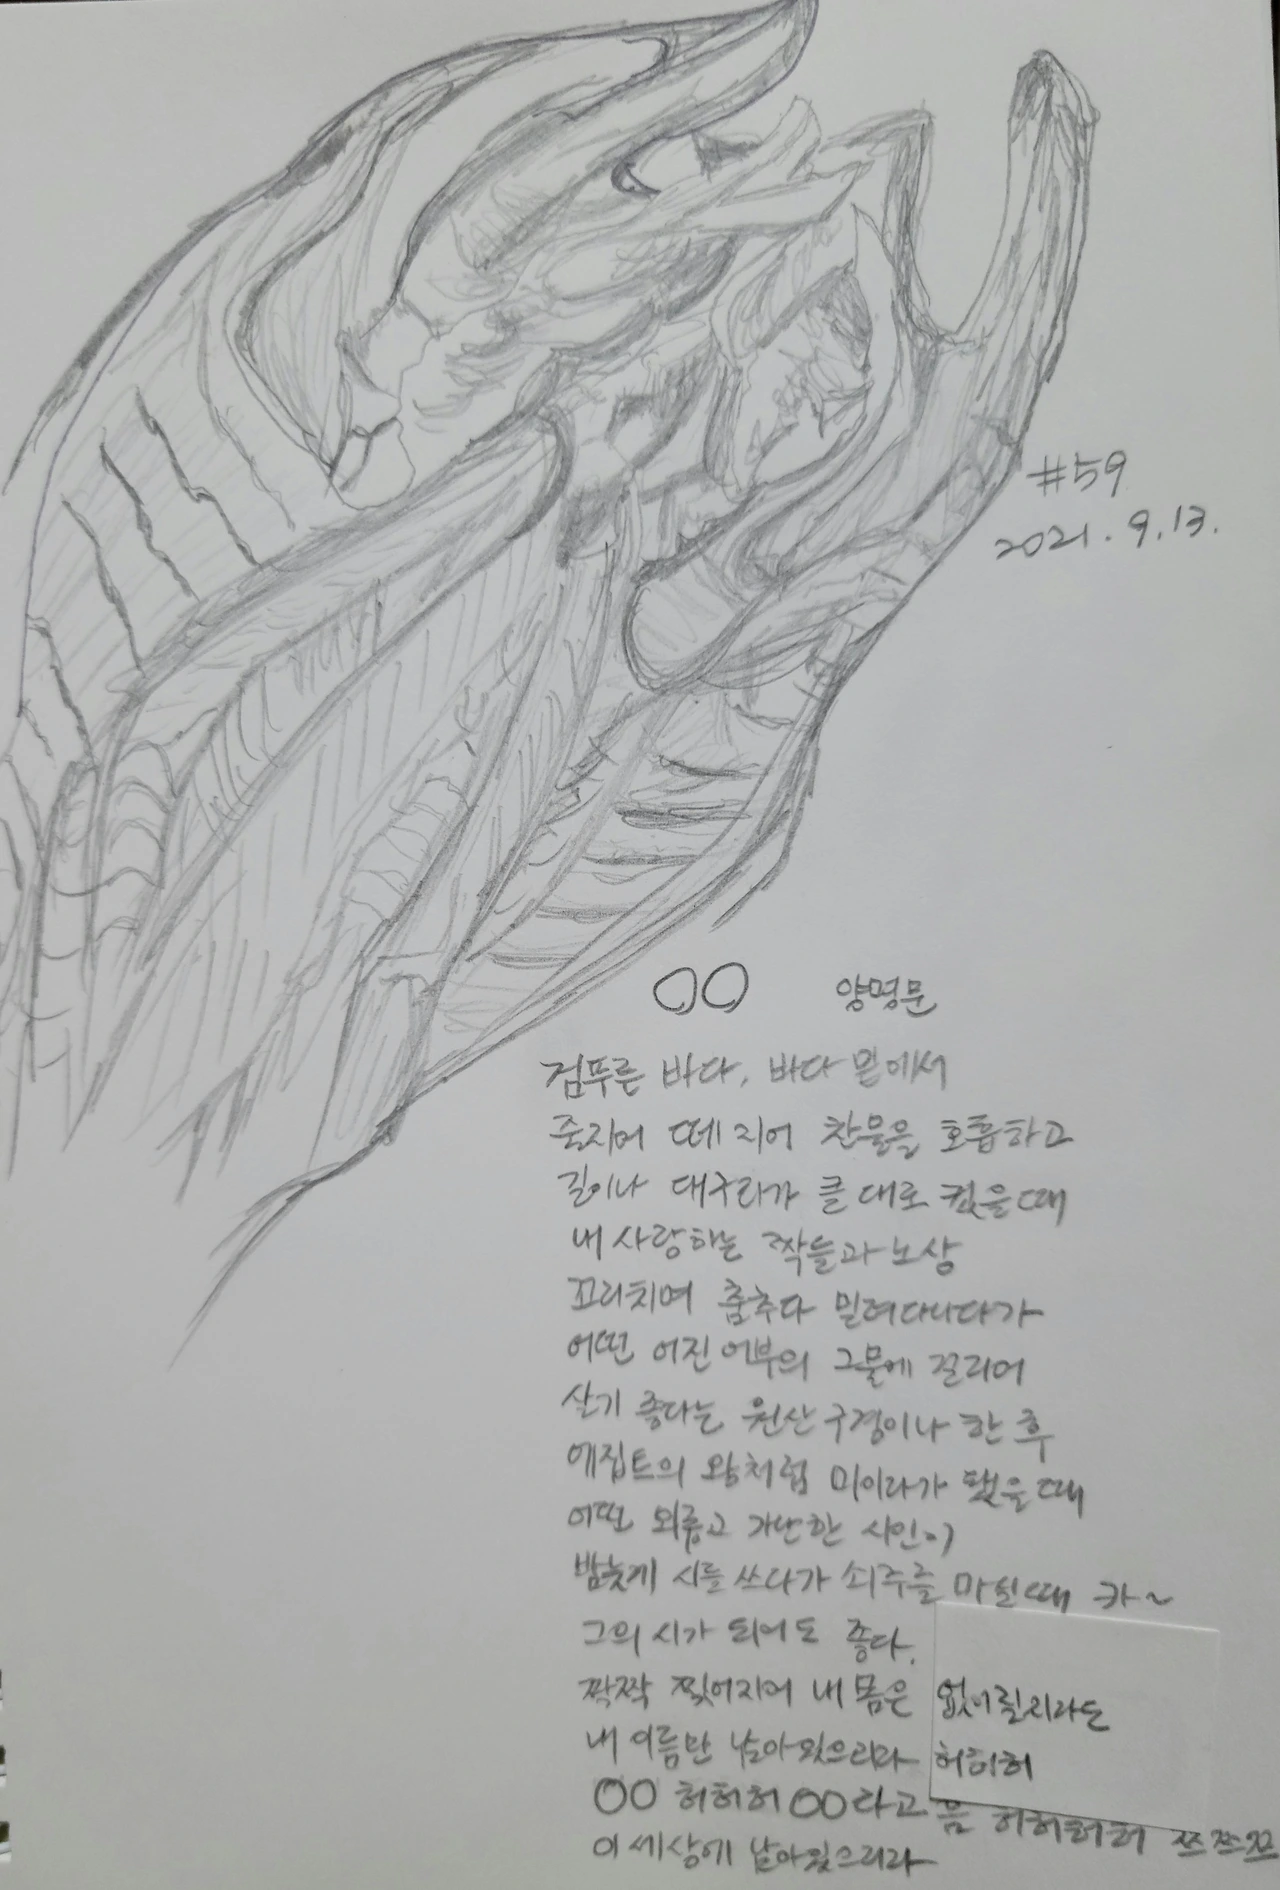 #59
2021. 9. 13.
○○ 양명문
검푸른 바다, 바다 밑에서
줄지어 떼지어 찬물을 호흡하고
길이나 대구리가 클 대로 컸을 때
내 사랑하는 짝들과 노상
꼬리치며 춤추다 밀려다니다가
어떤 어진 어부의 그물에 걸리어
살기 좋다는 원산 구경이나 한 후
에집트의 왕처럼 미이라가 됐을 때
어떤 외롭고 가난한 시인이
밤늦게 시를 쓰다가 쇠주를 마실 때 카~
그의 시가 되어도 좋다.
짝짝 찢어지어 내 몸은 없어질지라도
내 이름만 남아 있으리라 허허허
○○ 허허허 ○○라고 음 허허허허 쯔쯔쯔
이 세상에 남아 있으리라